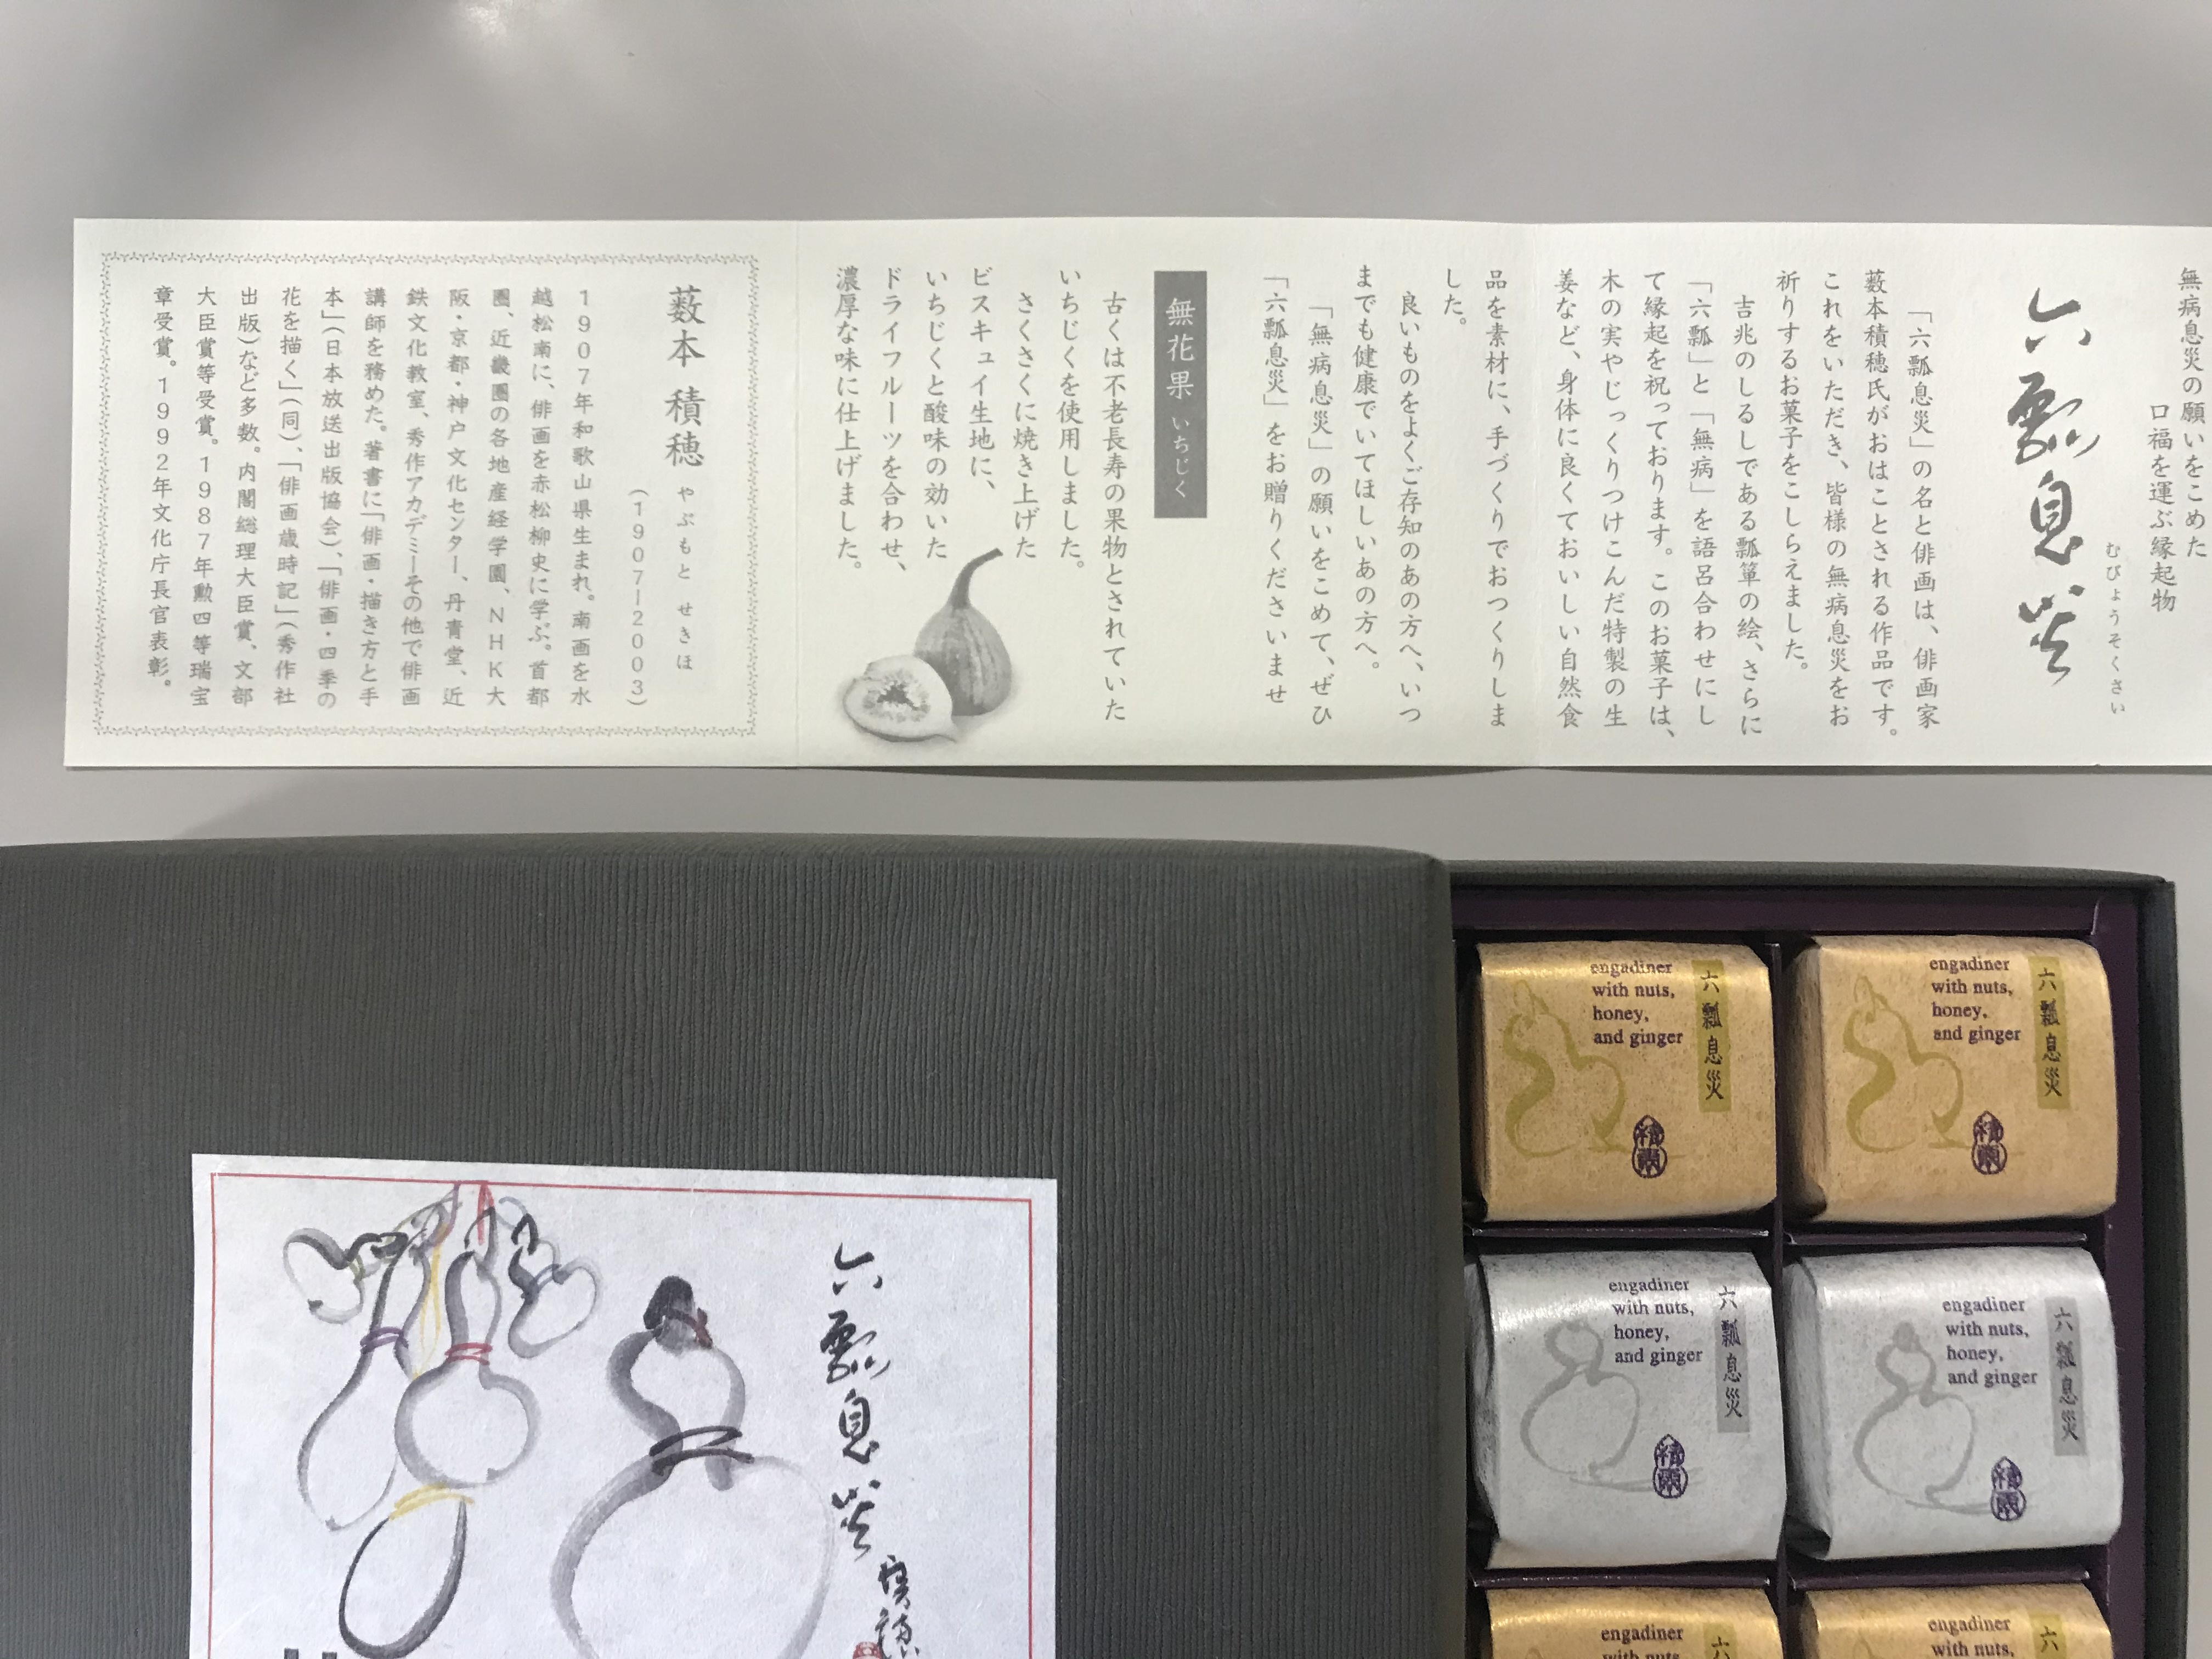 無病息災の願いをこめた
口福を運ぶ縁起物
六瓢息災
むびょうそくさい
「六瓢息災」の名と俳画は、俳画家
藪本積穂氏がおはことされる作品です。
これをいただき、皆様の無病息災をお
祈りするお菓子をこしらえました。
吉兆のしるしである瓢箪の絵、さらに
「六瓢」と「無病」を語呂合わせにし
て縁起を祝っております。このお菓子は、
木の実やじっくりつけこんだ特製の生
姜など、身体に良くておいしい自然食
品を素材に、手づくりでおつくりしま
した。
良いものをよくご存知のあの方へ、いつ
までも健康でいてほしいあの方へ。
「無病息災」の願いをこめて、ぜひ
「六瓢息災」をお贈りくださいませ
無花果 いちじく
古くは不老長寿の果物とされていた
いちじくを使用しました。
さくさくに焼き上げた
ビスキュイ生地に、
いちじくと酸味の効いた
ドライフルーツを合わせ、
濃厚な味に仕上げました。
藪本 積穂 やぶもと せきほ
(1907ー2003)
1907年和歌山県生まれ。南画を水
越松南に、俳画を赤松柳史に学ぶ。首都
圏、近畿圏の各地産経学園、NHK大
阪・京都・神戸文化センター、丹青堂、近
鉄文化教室、秀作アカデミーその他で俳画
講師を務めた。著書に「俳画・描き方と手
本」(日本放送出版協会)、「俳画・四季の
花を描く」(同)、「俳画歳時記」(秀作社
出版)など多数。内閣総理大臣賞、文部
大臣賞等受賞。1987年勲四等瑞宝
章受賞。1992年文化庁長官表彰。
六瓢息災
積穂
engadiner
with nuts,
honey,
and ginger
六瓢息災
積穂
engadiner
with nuts,
honey,
and ginger
六瓢息災
積穂
engadiner
with nuts,
honey,
and ginger
六瓢息災
積穂
engadiner
with nuts,
honey,
and ginger
六瓢息災
積穂
engadiner
with nuts,
六
engadiner
with nuts,
六